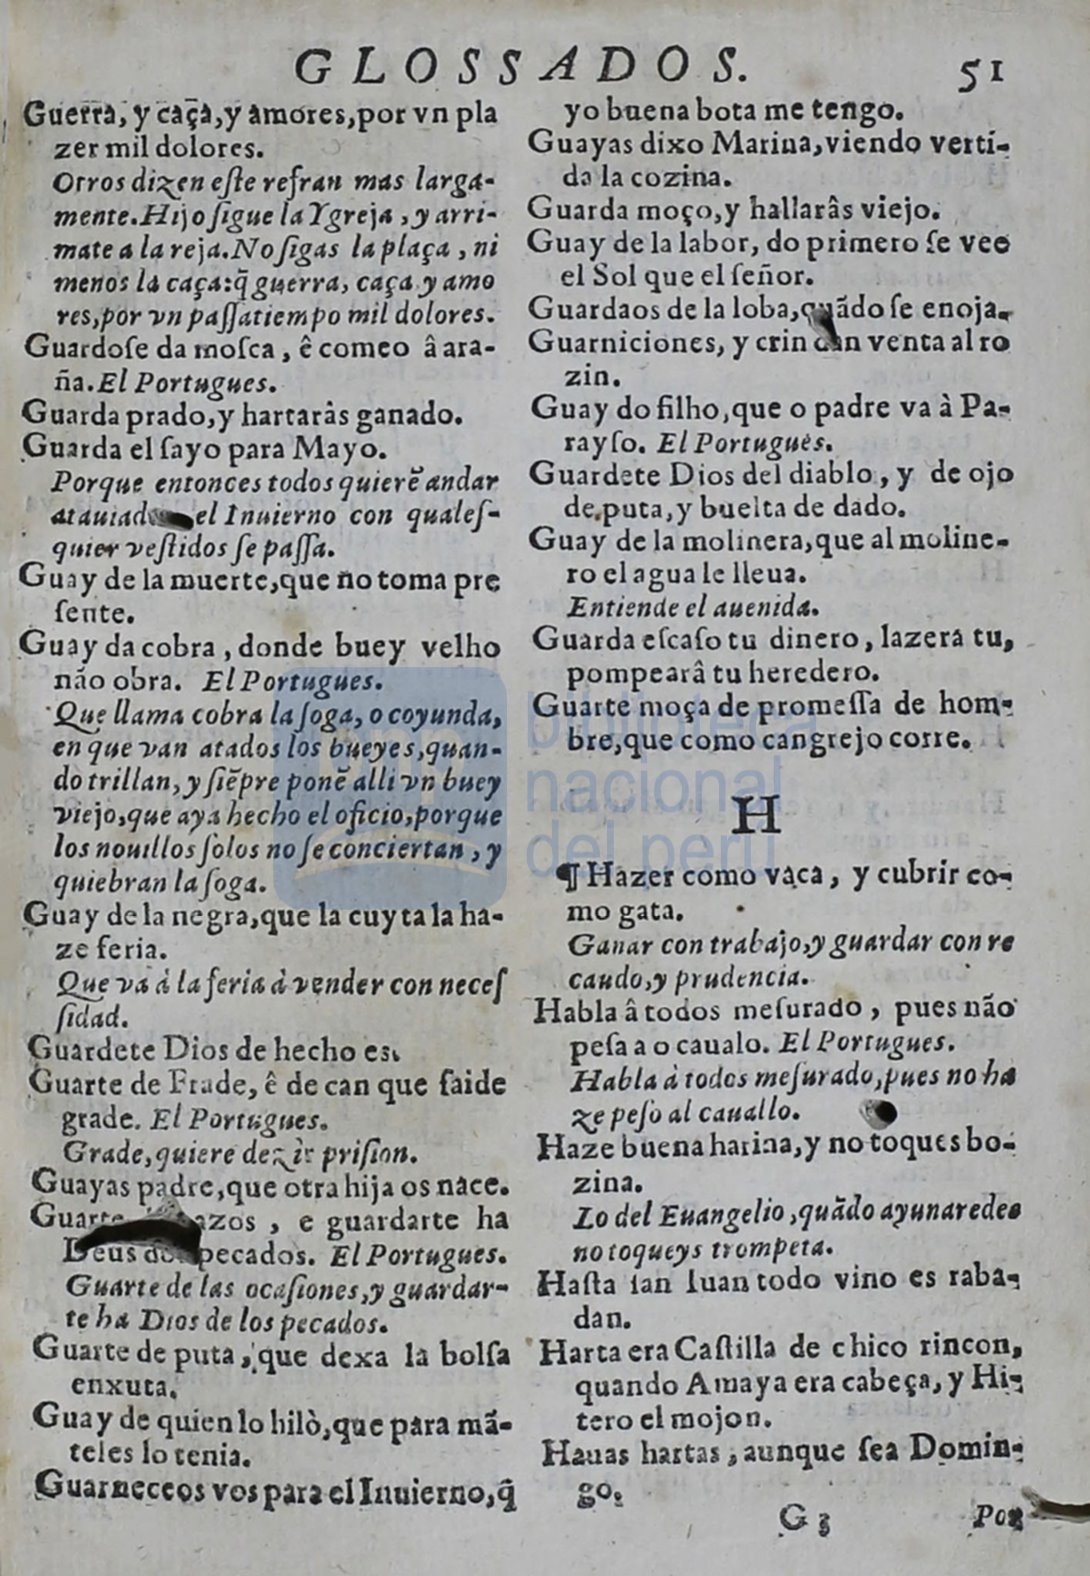 GLOSSADOS. 51
Guerra, y caça,y amores,por vn pla
zer mil dolores.
Otros dizen eſte refran mas larga-
mente.Hijo ſigue la Ygreja ,y arri-
mate a la reja.No ſigas la plaça , ni
menos la caça:q̃ guerra, caça y amo
res,por vn paſſatiempo mil dolores.
Guardoſe da moſca , ê comeo â ara-
ña.El Portugues.
Guarda prado,y hartaràs ganado.
Guarda el ſayo para Mayo.
Porque entonces todos quierẽ andar
atauiad el Inuierno con quales-
quier veſtidos ſe paſſa.
Guay de la muerte,que no toma pre
ſente.
Guay da cobra , donde buey velho
não obra. El Portugues.
Que llama cobra la ſoga, o coyunda,
en que van atados los bueyes,quan-
do trillan,y ſiẽpre ponẽ alli vn buey
viejo,que aya hecho el oficio,porque
los nouillos ſolos no ſe conciertan ,y
quiebran la ſoga.
Guay de la negra,que la cuyta la ha-
ze feria.
Que và à la feria à vender con neceſ
ſidad.
Guardete Dios de hecho es.
Guarte de Frade, ê de can que ſaide
grade. El Portugues.
Grade,quiere dezir priſion.
Guayas padre,que otra hija os nace.
Guarte azos , e guardarte ha
Deus dos pecados. El Portugues.
Guarte de las ocaſiones,y guardar-
te ha Dios de los pecados.
Guarte de puta, que dexa la bolſa
enxuta.
Guay de quien lo hilò,que para mã-
teles lo tenia.
Guarneceos vos para el Inuierno,q̃
yo buena bota me tengo.
Guayas dixo Marina,viendo verti-
da la cozina.
Guarda moço,y hallarâs viejo.
Guay de la labor, do primero ſe vee
el Sol que el ſeñor.
Guardaos de la loba,quãdo ſe enoja.
Guarniciones, y crin dan venta al ro
zin.
Guay do filho,que o padre va à Pa-
rayſo. El Portuguès.
Guardete Dios del diablo , y de ojo
de puta,y buelta de dado.
Guay de la molinera,que al moline-
ro el agua le lleua.
Entiende el auenida.
Guarda eſcaſo tu dinero, lazera tu,
pompearâ tu heredero.
Guarte moça de promeſſa de hom-
bre,que como cangrejo corre.
H
¶ Hazer como vaca, y cubrir co-
mo gata.
Ganar con trabajo,y guardar con re
caudo,y prudencia.
Habla â todos meſurado , pues não
peſa a o caualo. El Portugues.
Habla à todos meſurado,pues no ha
ze peſo al cauallo.
Haze buena harina,y no toques bo-
zina.
Lo del Euangelio ,quãdo ayunaredes
no toqueys trompeta.
Haſta ſan Iuan todo vino es raba-
dan.
Harta era Caſtilla de chico rincon,
quando Amaya era cabeça, y Hi-
tero el mojon.
Hauas hartas , aunque ſea Domin-
go.
G 3 Por
biblioteca
nacional
del perú